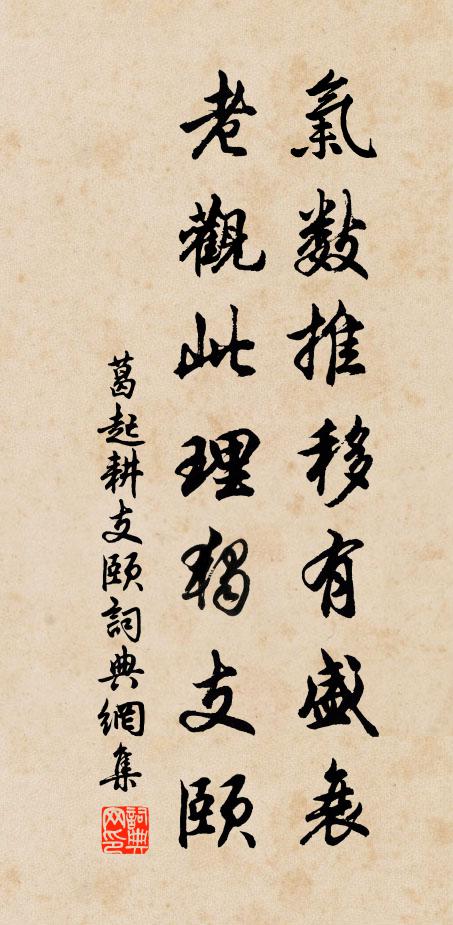 氣數推移有盛衰
老觀此理獨支頤
葛起耕支頤詞典網集
詞典
网印